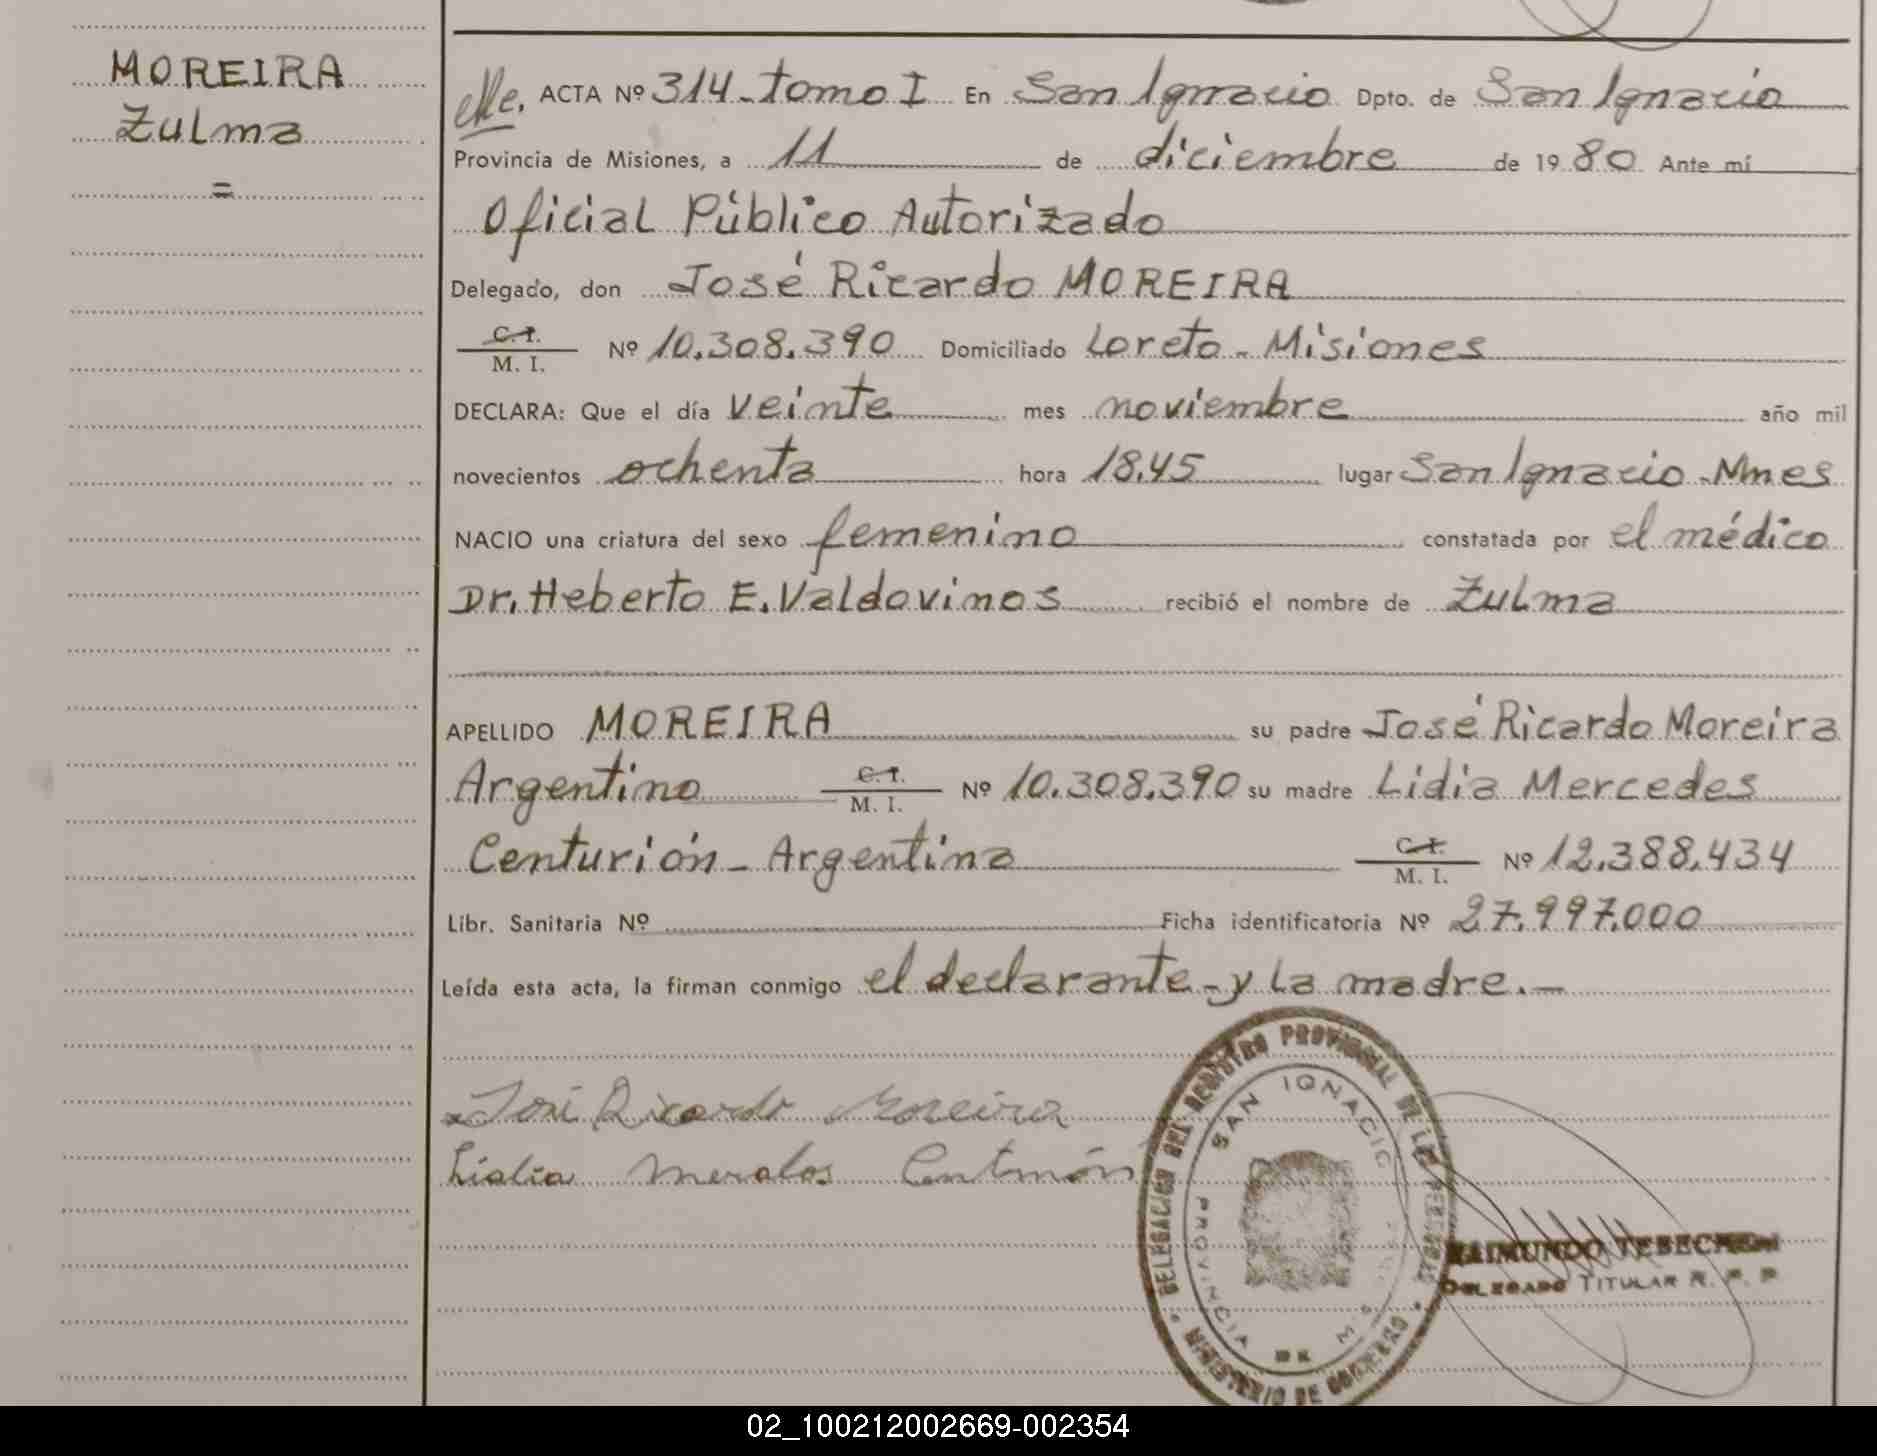 MOREIRA
Zulma
=
ACTA Nº 314-tomo I En San Ignacio Dpto. de San Ignacio
Provincia de Misiones, a 11 de diciembre de 1980 Ante mí
Oficial Público Autorizado
Delegado, don José Ricardo MOREIRA
C. I.
M. I. Nº 10.308.390 Domiciliado Loreto - Misiones
DECLARA: Que el día veinte mes noviembre año mil
novecientos ochenta hora 18,45 lugar San Ignacio - Mnes
NACIO una criatura del sexo femenino constatada por el médico
Dr. Heberto E. Valdovinos recibió el nombre de Zulma
APELLIDO MOREIRA su padre José Ricardo Moreira
Argentino C. I. M. I. Nº 10.308.390 su madre Lidia Mercedes
Centurión - Argentina C. I. M. I. Nº 12.388.434
Libr. Sanitaria Nº Ficha identificatoria Nº 27.997.000
Leída esta acta, la firman conmigo el declarante - y la madre. -
José Ricardo Moreira
Lidia Mercedes Centurión
DELEGACION DEL REGISTRO PROVINCIAL DE LAS PERSONAS
MINISTERIO DE GOBIERNO
SAN IGNACIO
PROVINCIA DE
RAIMUNDO
DELEGADO TITULAR R. P. P.
02_100212002669-002354